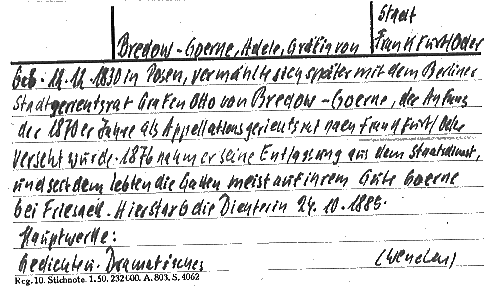 Stadt
Bredow-Goerne, Adele, Gräfin von Frankfurt/Oder
Geb. 11.11.1830 in Posen, vermählte sich später mit dem Berliner
Stadtgerichtsrat Grafen Otto von Bredow-Goerne, der Anfang
der 1870er Jahre als Appellationsgerichtsrat nach Frankfurt/Oder
versetzt wurde. 1876 nahm er seine Entlassung aus dem Staatsdienst,
und seitdem lebten die Gatten meist auf ihrem Gute Goerne
bei Friesack. Hier starb die Dichterin 24.10.1885.
Hauptwerke:
Gedichten. Dramatisches (Wenden)
Reg. 10. Stichnote. 1.50. 232600. A. 803. S. 4062